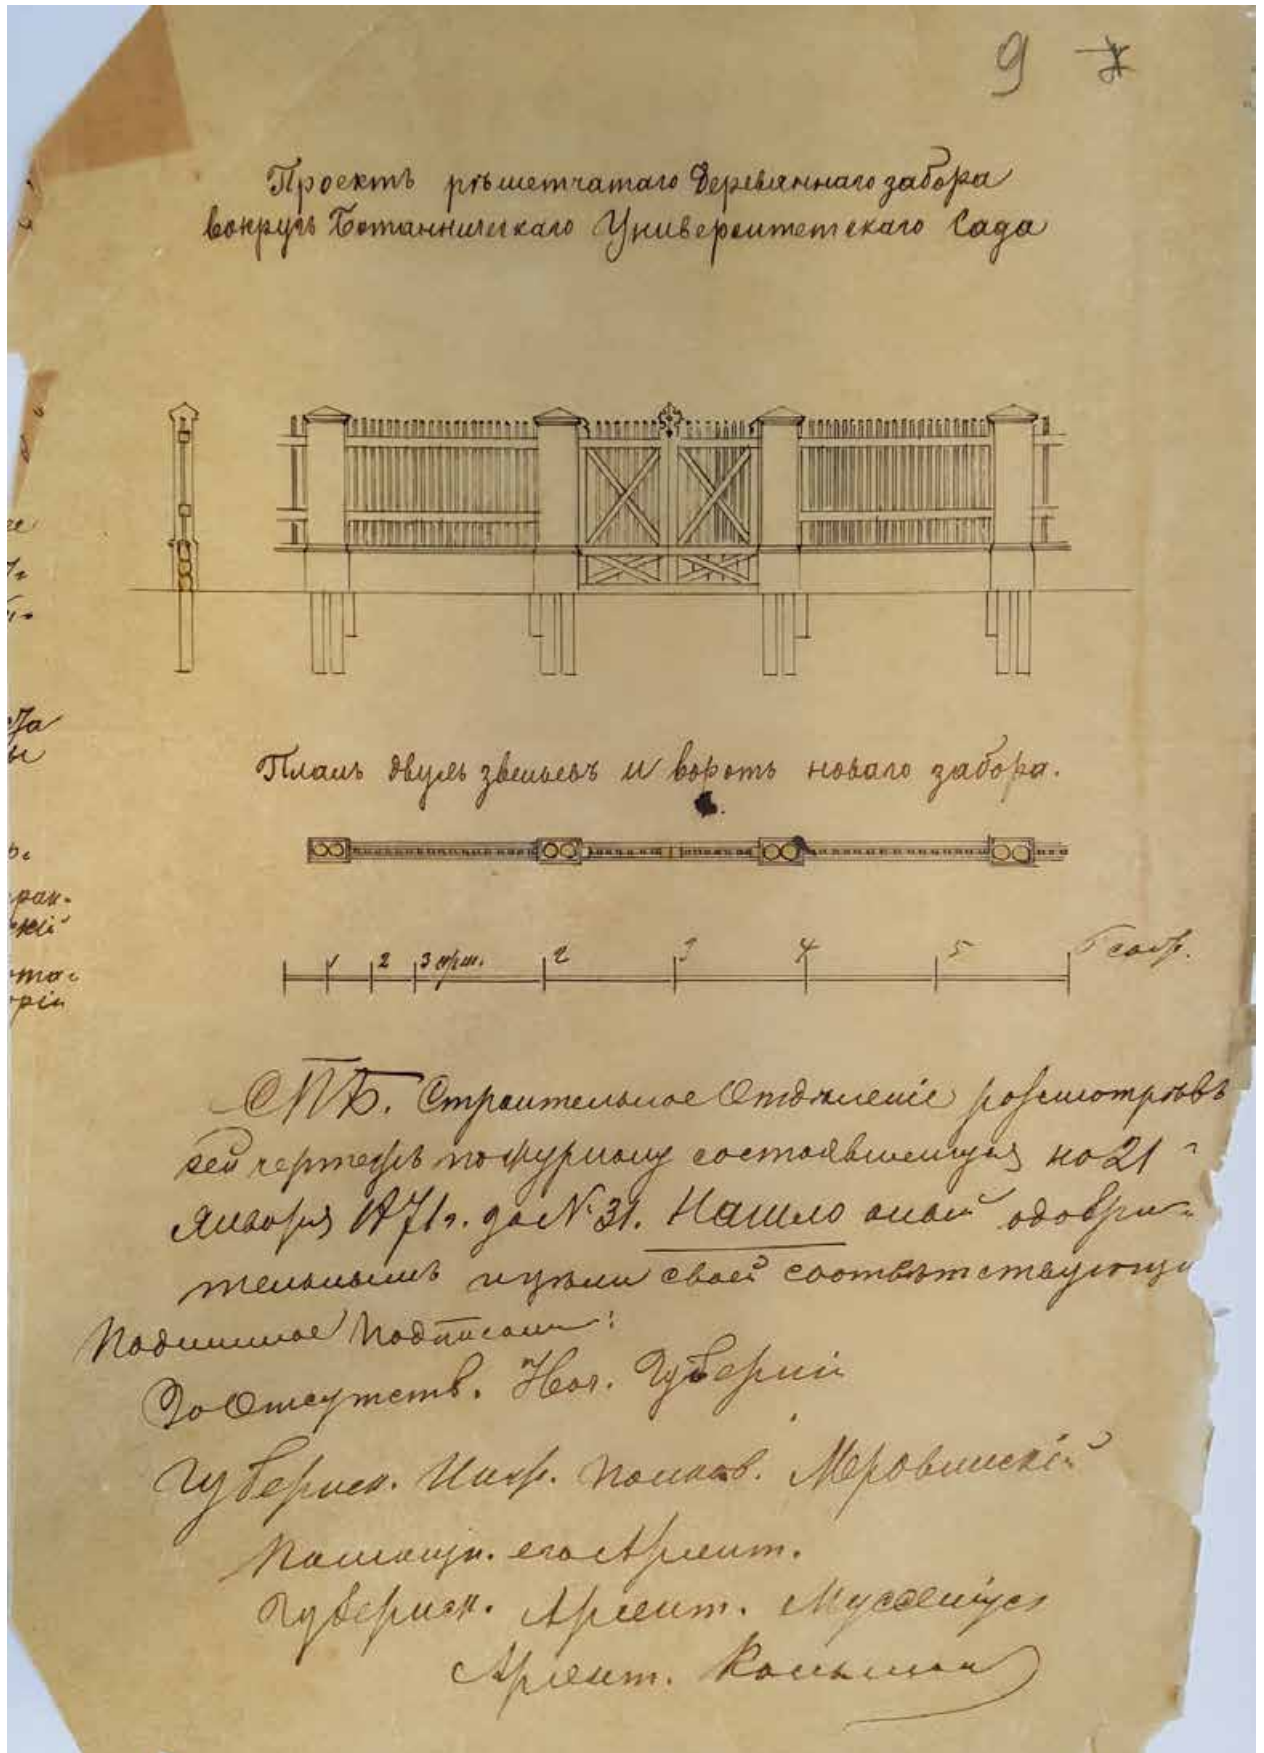 9
Проектъ рѣшетчатаго деревяннаго забора
вокругъ Ботаническаго Университетскаго Сада
Планъ двухъ звеньевъ и воротъ новаго забора.
1 2 3 арш. 2 3 4 5 6 саж.
СПБ. Строительное Отдѣленіе разсмотрѣвъ
сей чертежъ по журналу состоявшемуся на 21
Января 1871 г. за № 31. Нашло оный одобри-
тельнымъ и цѣли своей соотвѣтствующи
Подлинное подписали:
За Отсутств. Нач. Губерніи
Губернск. Инж. Полков. Меровинскій
Помощн. его Архит.
Губернск. Архит. Мусселіусъ
Архит.